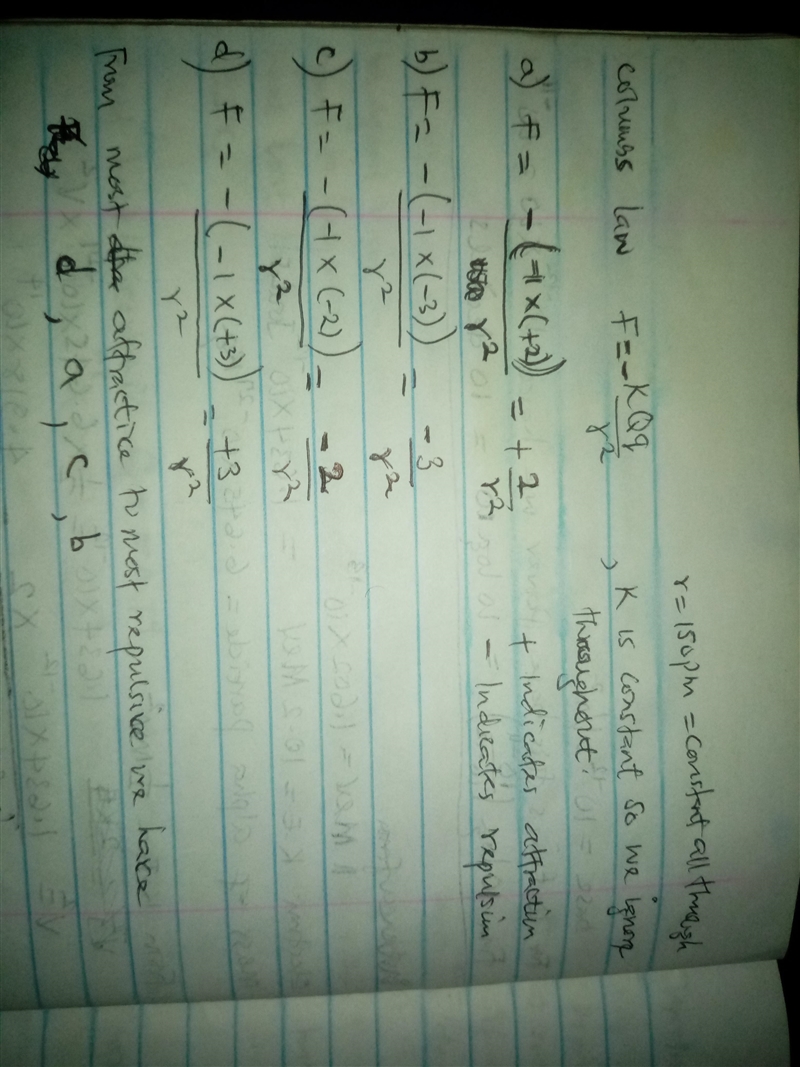 r = 150pm = constant all through
columbs law F = - KQq / r² , K is constant so we ignore
throughout.
a) F = - (-1 x (+2)) / r² = + 2 / r² + indicates attraction
- Indicates repulsion
b) F = - (-1 x (-3)) / r² = - 3 / r²
c) F = - (-1 x (-2)) / r² = - 2 / r²
d) F = - (-1 x (+3)) / r² = +3 / r²
From most attractive to most repulsive we have
d, a, c, b